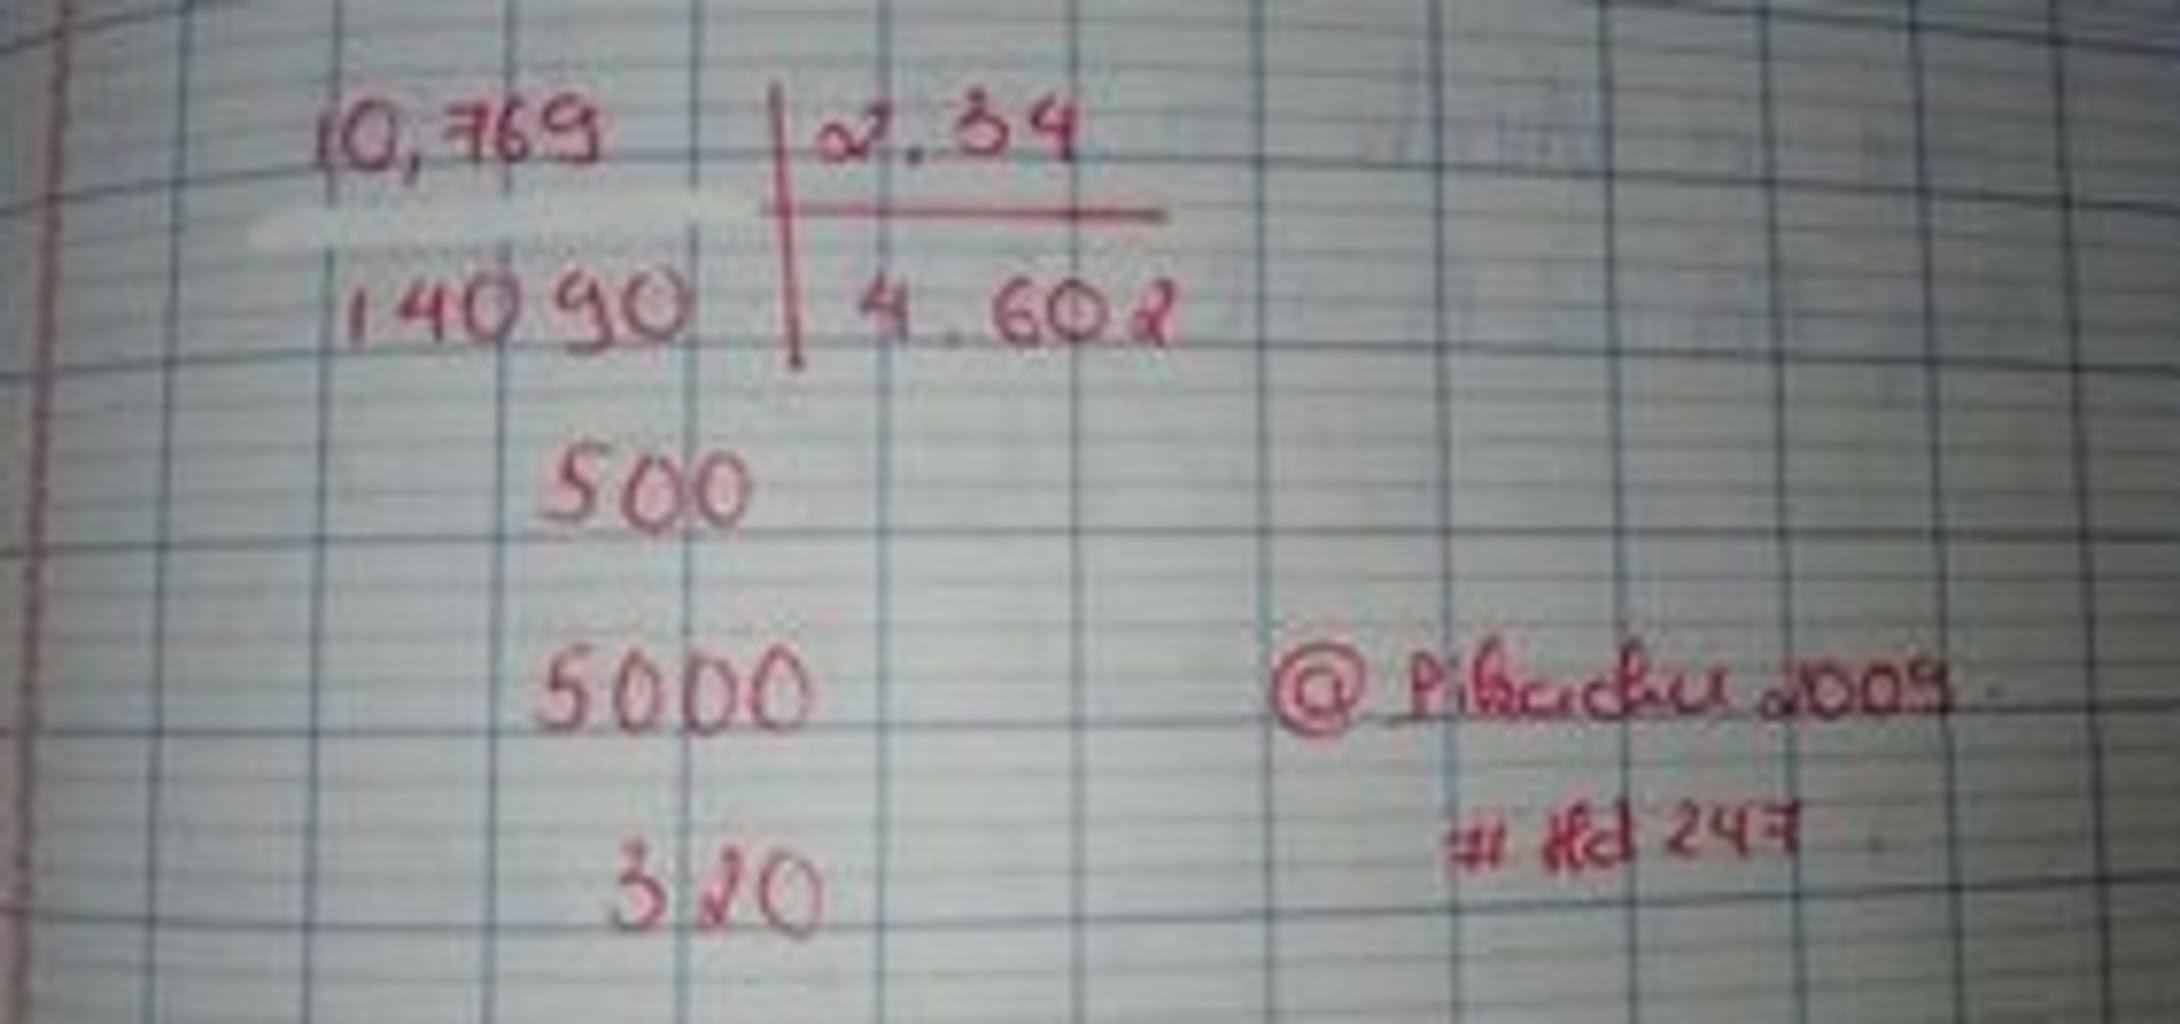 10,769 2.34
14090 4.602
500
5000
@Pikachu2009
320
# Hd 247